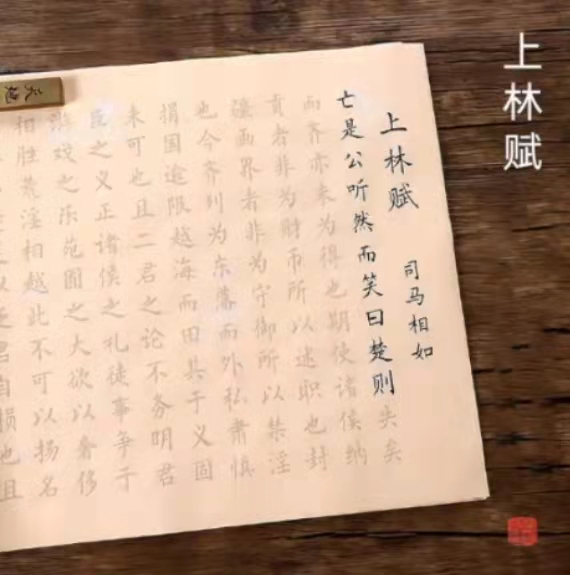 上林赋
上林赋 司马相如
亡是公听然而笑曰楚则失矣
而齐亦未为得也期使诸侯纳
贡者非为财币所以述职也封
疆画界者非为守御所以禁淫
也今齐列为东藩而外私肃慎
捐国逾限越海而田其于义固
未可也且二君之论不务明君
臣之义正诸侯之礼徒事争于
游戏之乐苑囿之大欲以奢侈
相胜荒淫相越此不可以扬名
君自损也且
天地